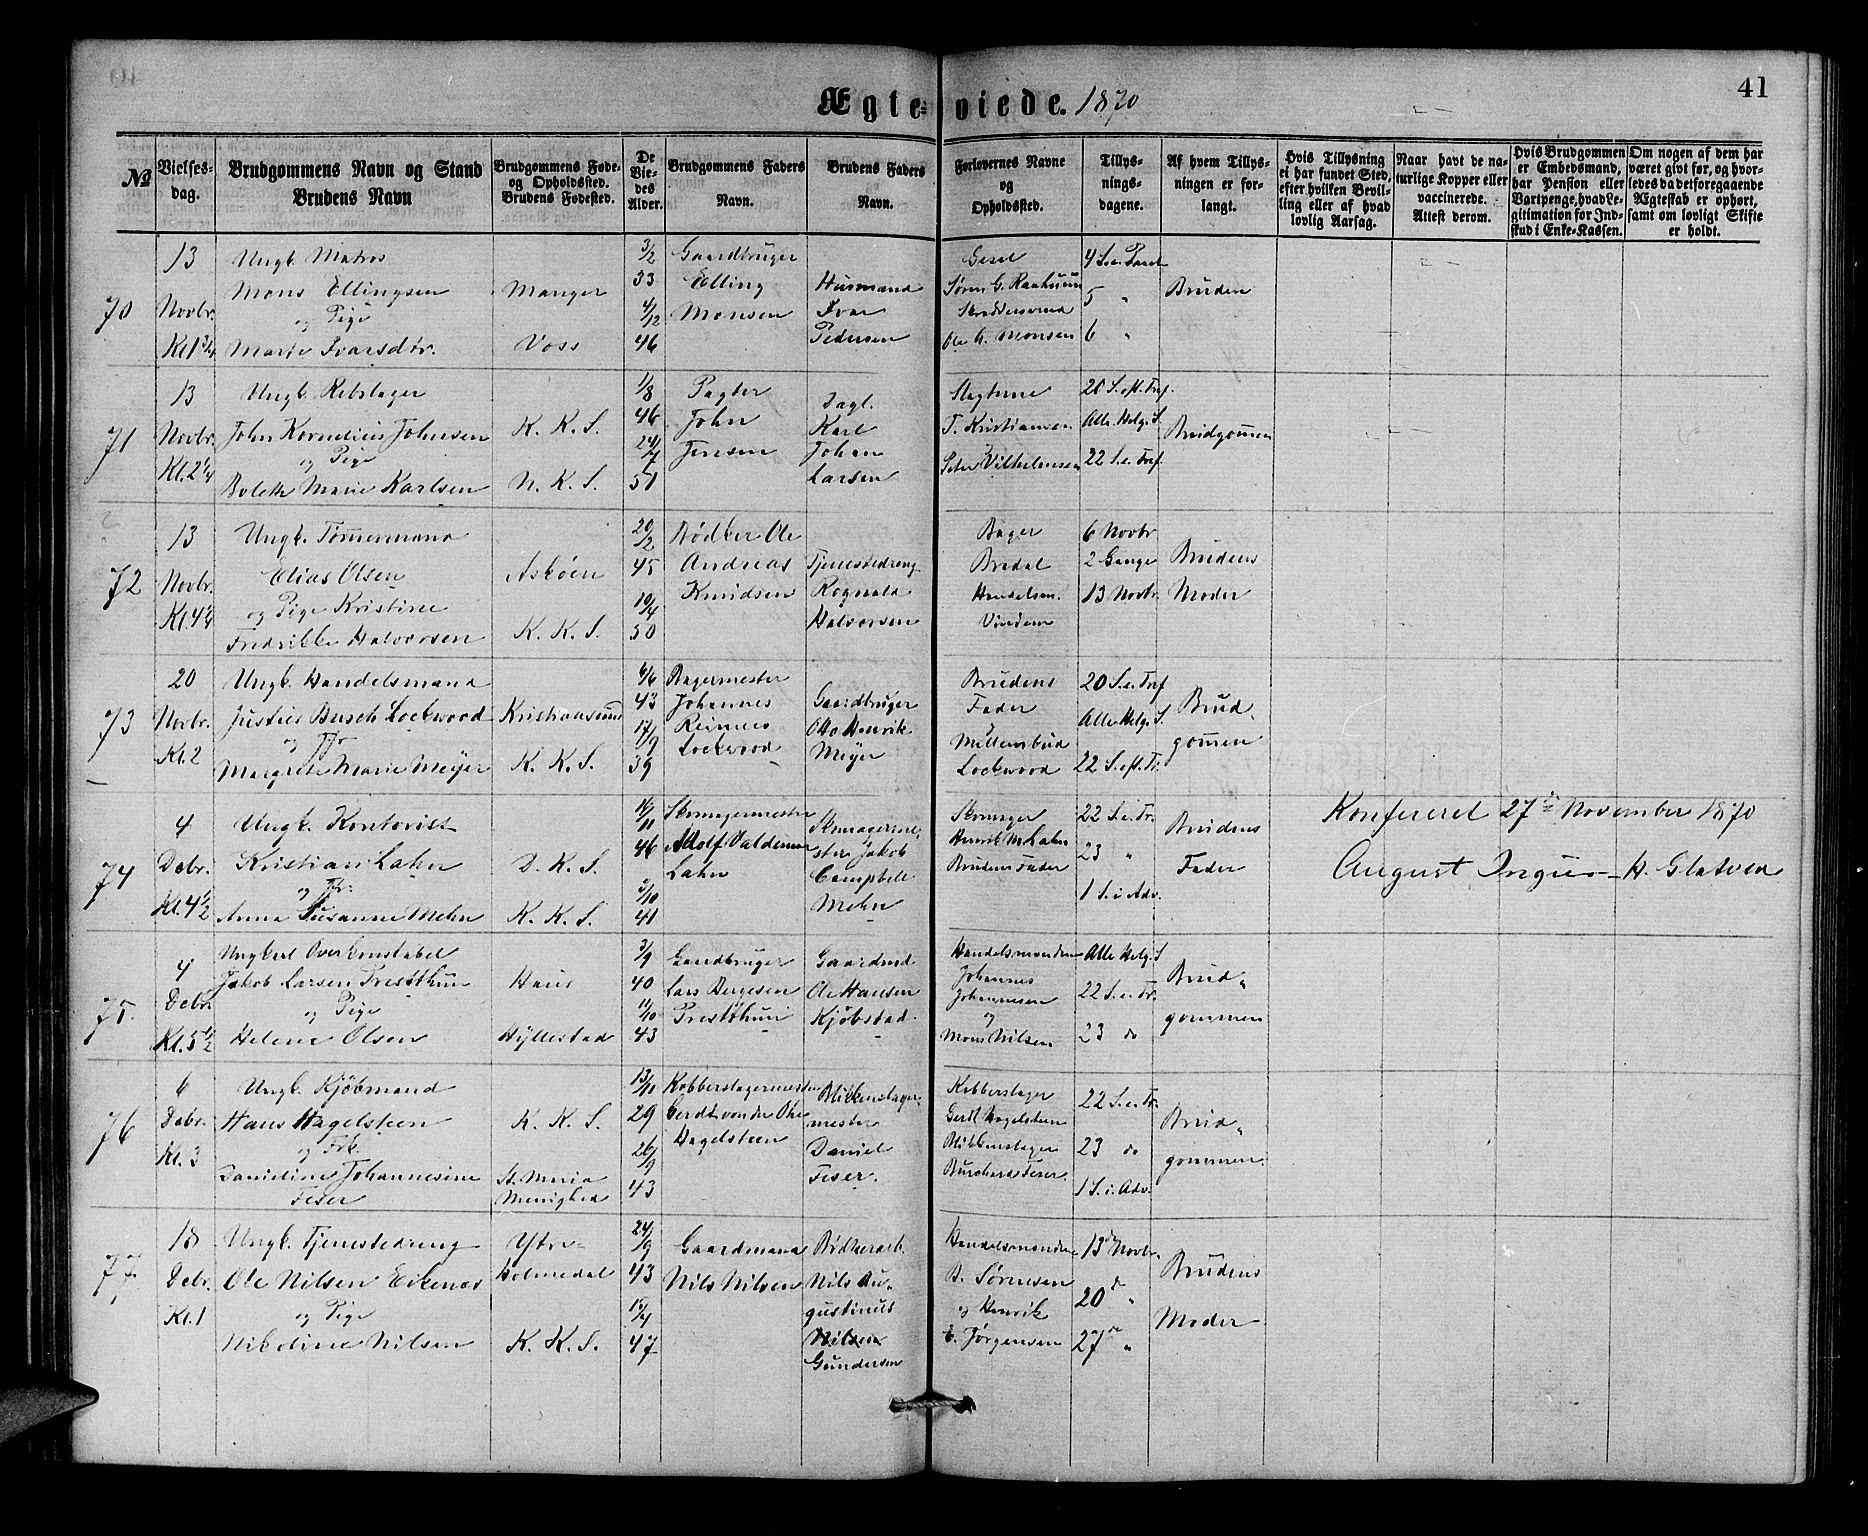 Ægteviede. 1870
41
№
Vielsesdag.
Brudgommens Navn og Stand
Brudens Navn
Brudgommens Føde- og Opholdssted.
Brudens Fødested.
De Viedes Alder.
Brudgommens Faders Navn.
Brudens Faders Navn.
Forlovernes Navne og Opholdssted.
Tillysningsdagene.
Af hvem Tillysningen er forlangt.
Hvis Tillysning ei har fundet Sted, efter hvilken Bevilling eller af hvad lovlig Aarsag.
Naar havt de naturlige Kopper eller vaccinerede. Attest derom.
Hvis Brudgommen er Embedsmand, har Pension eller Vartpenge, hvad Legitimation for Indskud i Enke-Kassen.
Om nogen af dem har været givt før, og hvorledes da det foregaaende Ægteskab er ophørt, samt om lovligt Skifte er holdt.
70
13 Novbr. Kl 1 3/4
Ungk. Matros
Mons Ellingsen
og Pige
Marte Ivarsdtr.
Manger
Voss
3/2 33
4/12 46
Gaardbruger
Elling
Monsen
Husmand
Ivar
Pedersen
Gesel
Søren G.
Ole A. Monsen
4 S. e. Pask
5 "
6 "
Bruden
71
13 Novbr. Kl. 2 1/4
Ungk. Rebslager
John Kornelius Johnsen
og Pige
Bolette Marie Karlsen
K. K. S.
N. K. S.
1/8 46
24/7 51
Pagter
John
Jensen
Dagl.
Karl
Johan
Larsen
T. Kristiansen
Peter Vilhelmsen
20 S. eft. Tref.
Alle Helg. S.
22 S. e. Tref.
Brudgommen
72
13 Novbr. Kl. 4 1/4
Ungk. Tømmermand
Elias Olsen
og Pige Kristine
Fredrikke Halvorsen
Askøen
K. K. S.
20/2 45
19/4 50
Bødker Ole
Andreas
Knudsen
Tjenestedreng
Rognald
Halvorsen
Bager
Bredal
Handelsm.
6 Novbr
2 Gange
13 Novbr.
Brudens
Moder
73
20 Novbr. Kl. 2
Ungk. Handelsmand
Justus Busch Lockwood
og Jfr
Margrete Marie Meyer
Kristiansund
K. K. S.
6/6 43
17/9 39
Bagermester
Johannes
Reimers
Lockwood
Gaardbruger
Otto Henrik
Meyer
Brudens
Fader
Lockwood
20 S. e. Tref
Alle Helg. S.
22 S. eft. Tr.
Brudgommen
74
4 Debr. Kl. 4 1/2
Ungk. Kontorist
Kristian Lahn
og Jfr.
Anna Susanne Mehn
D. K. S.
K. K. S.
46
41
Skomagermester
Adolf Valdemar
Lahn
Skomagermester Jakob
Campbell
Mehn
Skomager
Henrik M. Lahn
Brudens Fader
22 S. e. Tr.
23 "
1 S. i Adv.
Brudens
Fader
Konfereret 27de November 1870
August H. Glatved
75.
4 Debr. Kl. 5 1/2
Ungkarl Overkonstabel
Jakob Larsen Prestthun
og Pige
Helene Olsen
Haus
Hyllestad
3/9 40
11/10 43
Gaardbruger
Lars Børgesen
Prestthun
Gaardmd.
Ole Hansen
Kjøbstad
Handelsmændene
Johannes
Johannesen
og
Mons Nilsen
Alle Helg. S
22 S. e. Tr.
23 do
Brudgommen
76
6 Debr. Kl. 3
Ungk. Kjøbmand
Hans Hagelsteen
og Frk.
Danieline Johannesine
Feser
K. K. S.
St. Maria
Menighed
13/11 29
26/9 43
Kobberslagermester
Gerdt von der Ohe
Hagelsteen
Blikkenslagermester
Daniel
Feser.
Kobberslager
Gerdt Hagelsteen
Blikkenslager
Burchard Feser
22 S. e. Tr.
23 do
1 S. i Adv.
Brudgommen.
77.
18 Debr. Kl. 1
Ungk. Tjenestedreng
Ole Nilsen Eikenes
og Pige
Nikoline Nilsen
Ytre-
Holmedal
K. K. S.
24/9 43
15/4 47
Gaardmand
Nils Nilsen
Bødkerarb.
Nils Augustinus
Nilsen
Gundersen
Handelsmændene
B. Sørensen
og Henrik
C. Jørgensen
13de Novbr.
20de "
27de "
Brudens
Moder